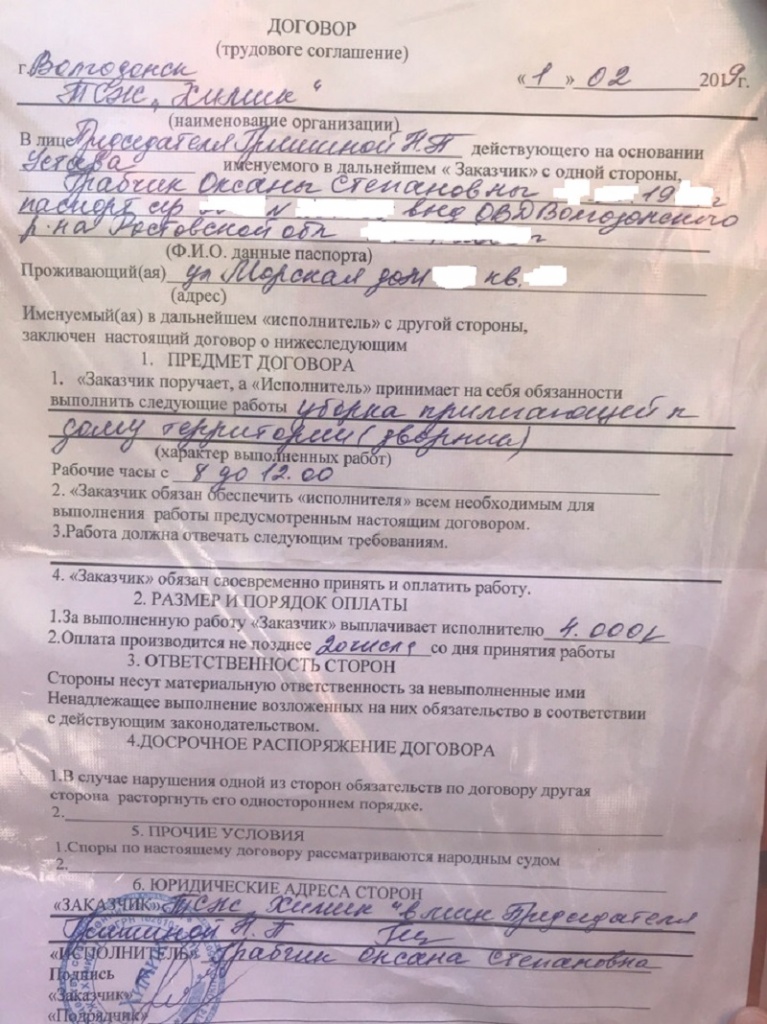 ДОГОВОР
(трудовоге соглашение)
г. Волгодонск «1» 02 2019г.
ТСЖ „Химик“
(наименование организации)
В лице Председателя Гришиной Н.П действующего на основании
Устава именуемого в дальнейшем « Заказчик» с одной стороны,
Грабчик Оксаны Степановны 19 г
паспорт сер N выд ОВД Волгодонского
р-на Ростовской обл
(Ф.И.О. данные паспорта)
Проживающий(ая) ул Морская дом кв.
(адрес)
Именуемый(ая) в дальнейшем «исполнитель» с другой стороны,
заключен настоящий договор о нижеследующим
1. ПРЕДМЕТ ДОГОВОРА
1. «Заказчик поручает, а «Исполнитель» принимает на себя обязанности
выполнить следующие работы уборка прилигающей к
дому территории (дворник)
(характер выполненных работ)
Рабочие часы с 8 до 12.00
2. «Заказчик обязан обеспечить «исполнителя» всем необходимым для
выполнения работы предусмотренным настоящим договором.
3.Работа должна отвечать следующим требованиям.
4. «Заказчик» обязан своевременно принять и оплатить работу.
2. РАЗМЕР И ПОРЯДОК ОПЛАТЫ
1.За выполненную работу «Заказчик» выплачивает исполнителю 4.000р
2.Оплата производится не позднее 20 числа со дня принятия работы
3. ОТВЕТСТВЕННОСТЬ СТОРОН
Стороны несут материальную ответственность за невыполненные ими
Ненадлежащее выполнение возложенных на них обязательство в соответствии
с действующим законодательством.
4.ДОСРОЧНОЕ РАСПОРЯЖЕНИЕ ДОГОВОРА
1.В случае нарушения одной из сторон обязательств по договору другая
сторона расторгнуть его одностороннем порядке.
2.
5. ПРОЧИЕ УСЛОВИЯ
1.Споры по настоящему договору рассматриваются народным судом
2.
6. ЮРИДИЧЕСКИЕ АДРЕСА СТОРОН
«ЗАКАЗЧИК» ТСЖ „Химик“ в лице Председателя
Гришиной Н.П
«ИСПОЛНИТЕЛЬ» Грабчик Оксана Степановна
Подпись
«Заказчик»
«Подрядчик»
ХИМИК